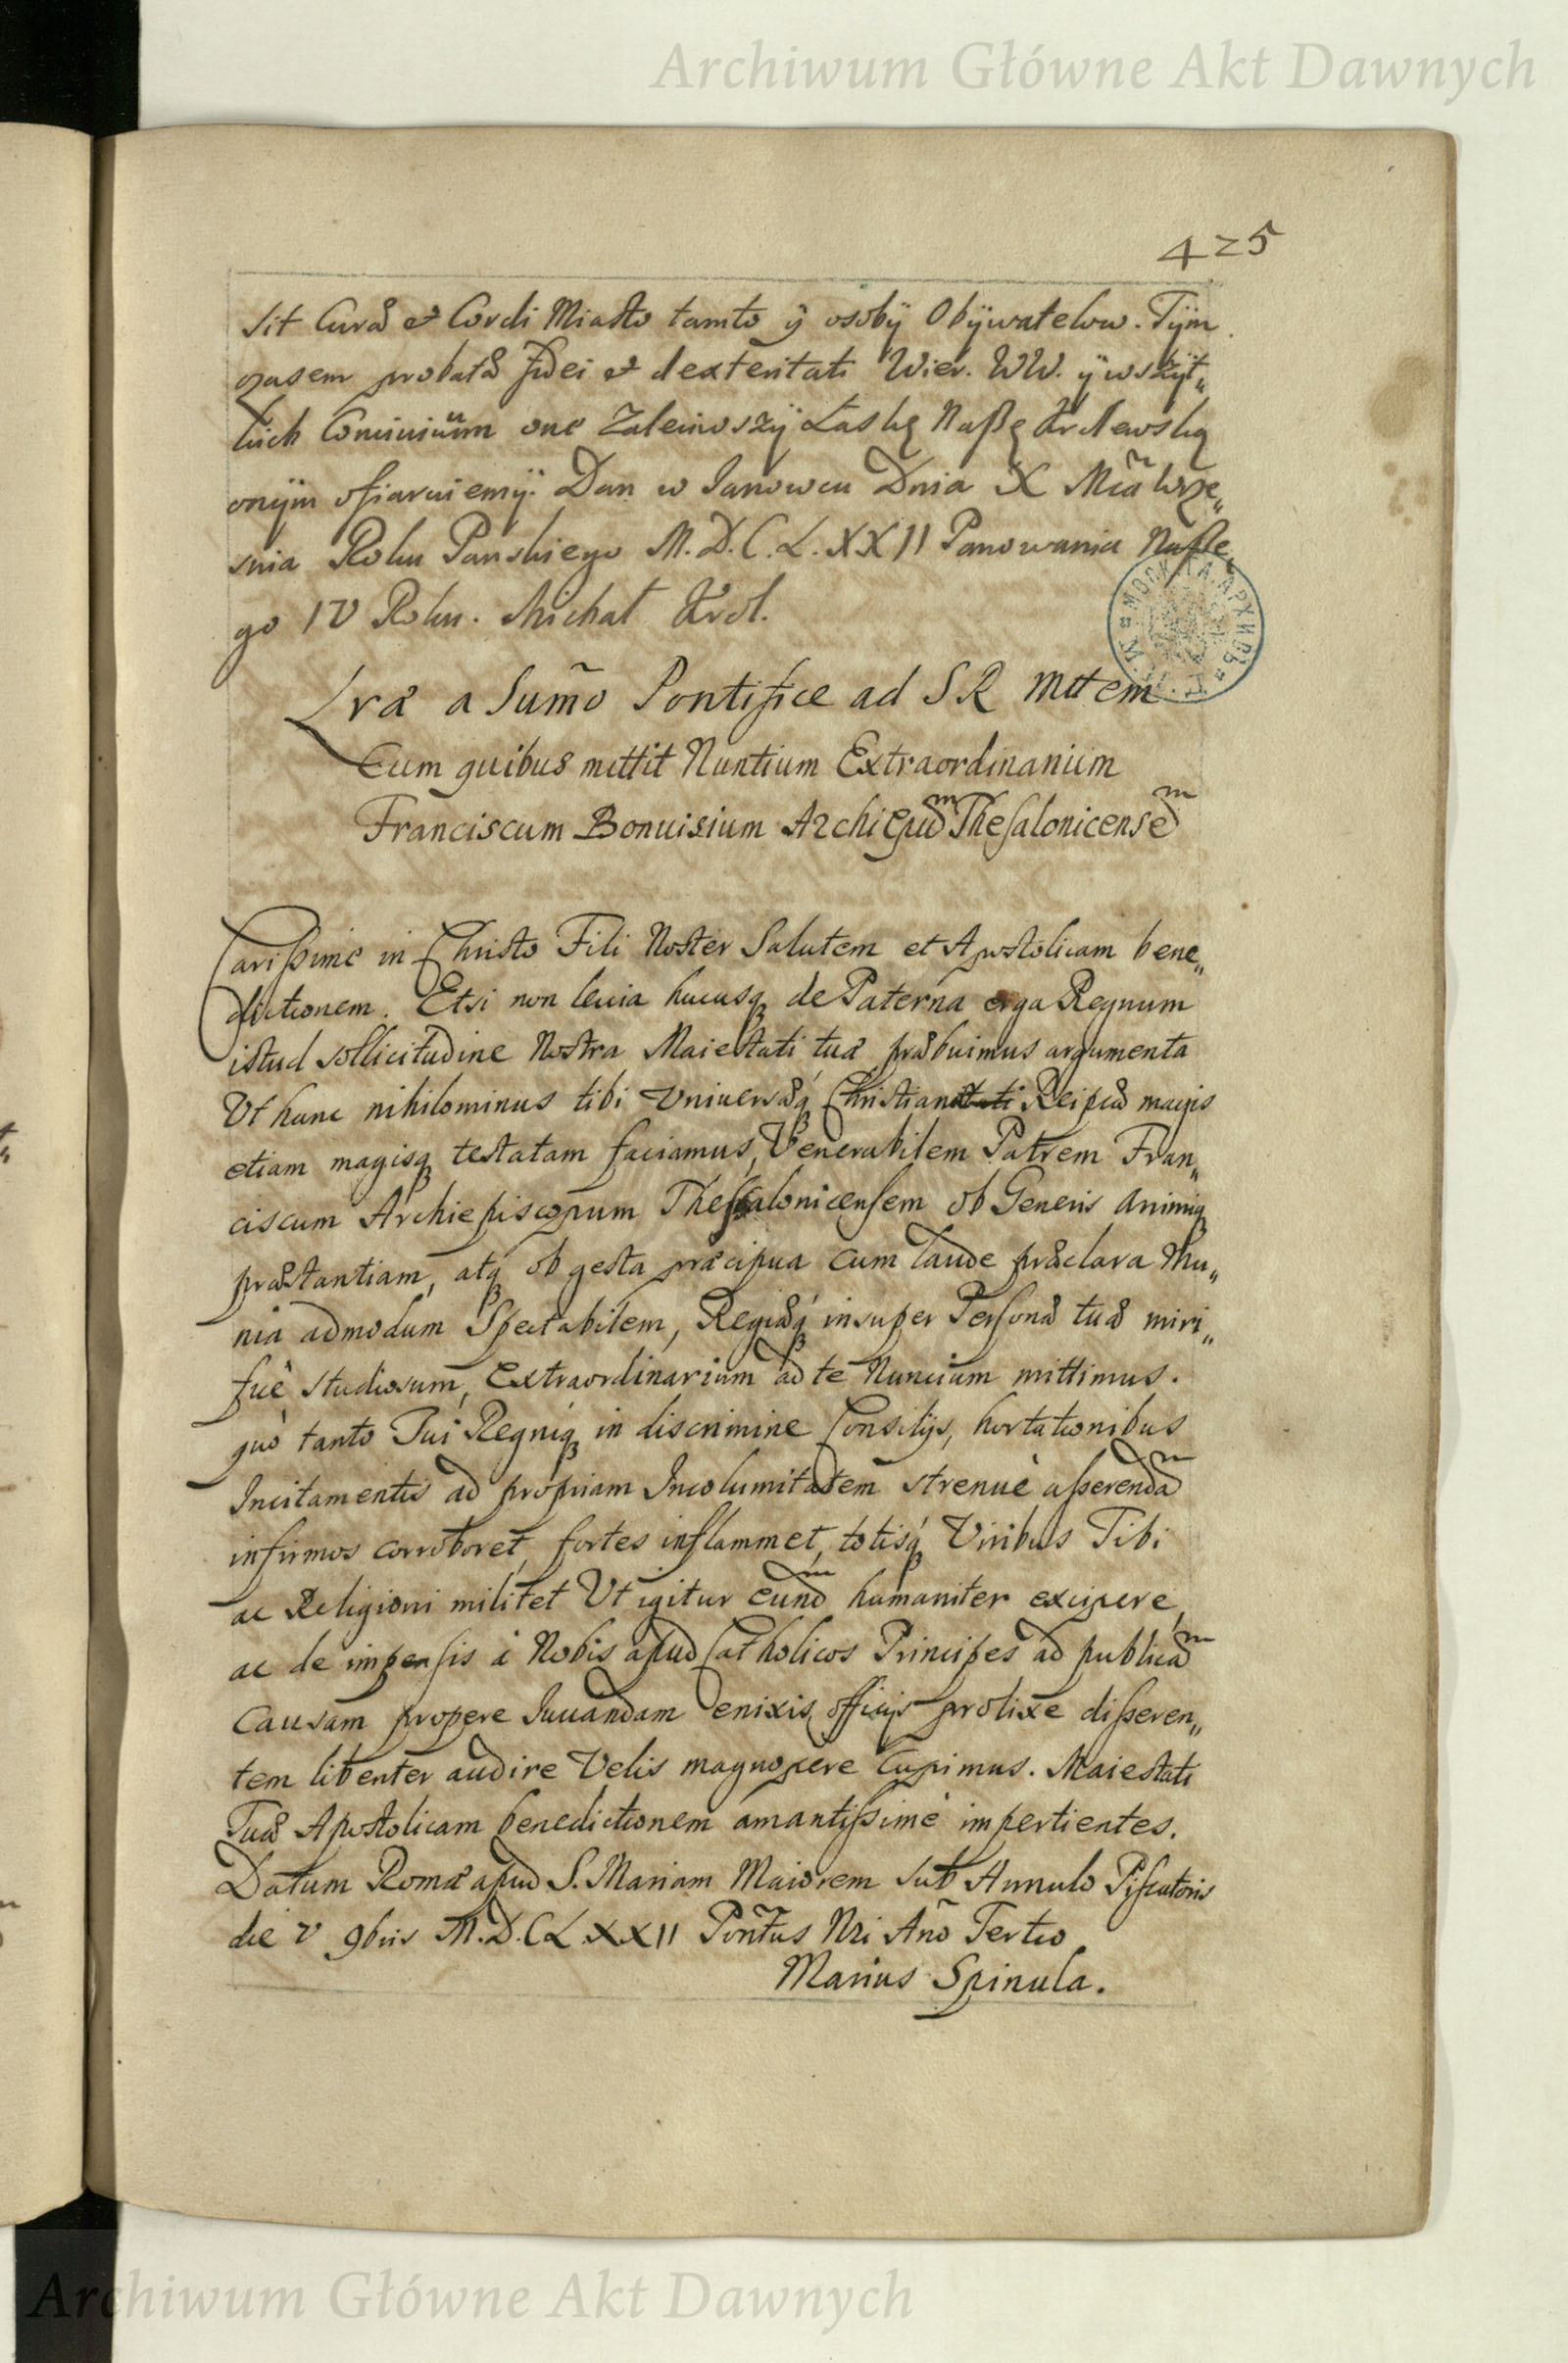 Archiwum Główne Akt Dawnych
425
sit Curæ et Cordi Miasto tamto ÿ osobÿ Obÿwatelow. Tÿm
czasem probatæ Fidei et dexteritati Wier. WW. ÿ wszÿt„
kich Conciuium one zaleciwszÿ Łaskę Naßę Krolewską
onÿm ofiaruiemÿ. Dan w Janowcu Dnia X Mc̃a Wrze„
snia Roku Panskiego M.D.C.L.XXII Panowania Naße„
go IV Roku. Michał Krol.
МОСК. ГЛ. АРХИВЪ
Lræ a Sum̃o Pontifice ad S R Mttem
Cum quibus mittit Nuntium Extraordinarium
Franciscum Bonuisium Archiepũm Thesalonicensem
Carissime in Christo Fili Noster Salutem et Apostolicam bene„
dictionem. Etsi non leuia hucusq de Paterna erga Regnum
istud sollicitudine Nostra Maiestati tuæ præbuimus argumenta
Ut hanc nihilominus tibi Vniuersæq́ Christianæ Reipcæ magis
etiam magisq testatam faciamus, Venerabilem Patrem Fran„
ciscum Archiepiscopum Thessalonicensem ob Generis Animiq
præstantiam, atq ob gesta præcipua cum laude præclara Mu„
nia admodum Spectabilem, Regiæq́ insuper Personæ tuæ miri„
fice studiosum, Extraordinarium ad te Nuncium mittimus.
quò tanto Tui Regniq́ in discrimine Consilijs, hortationibus
Incitamentis ad propriam Incolumitatem strenuè asserendam
infirmos corroboret, fortes inflammet, totisq́ Viribus Tibi
ac Religioni militet Ut igitur eundm humaniter excipere,
ac de impensis à Nobis apud Catholicos Principes ad publicam
Causam propere Iuuandam enixis officijs prolixe disseren„
tem libenter audire Velis magnopere Cupimus. Maiestati
Tuæ Apostolicam benedictionem amantissimè impertientes.
Datum Romæ apud S. Mariam Maiorem sub Annulo Piscatoris
die V 9bris M.D.CLXXII Pont̃us Nri Añno Tertio
Marius Spinula.
Archiwum Główne Akt Dawnych